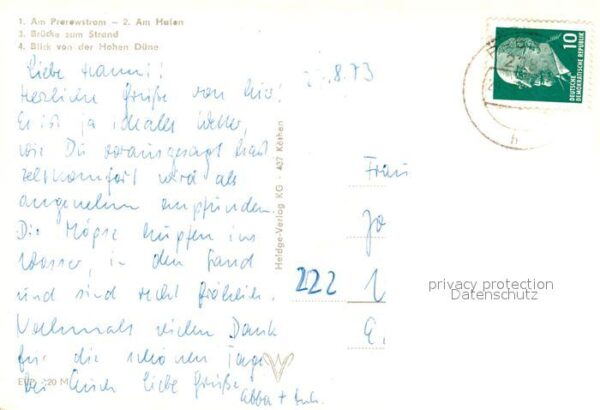 1. Am Prerowstrom – 2. Am Hafen
3. Brücke zum Strand
4. Blick von der Hohen Düne
Liebe Hanni!
Herzliche Grüße von hier!
Es ist ja ideales Wetter,
wie Du vorausgesagt hast
Zeltkomfort wird als
angenehm empfunden.
Die Möpse hüpfen ins
Wasser, in den Sand
und sind recht fröhlich.
Nochmals vielen Dank
für die schönen Tage
bei Euch Liebe Grüße
8.73
Heldge-Verlag KG · 437 Köthen
Frau
222
10
DEUTSCHE
DEMOKRATISCHE REPUBLIK
privacy protection
Datenschutz